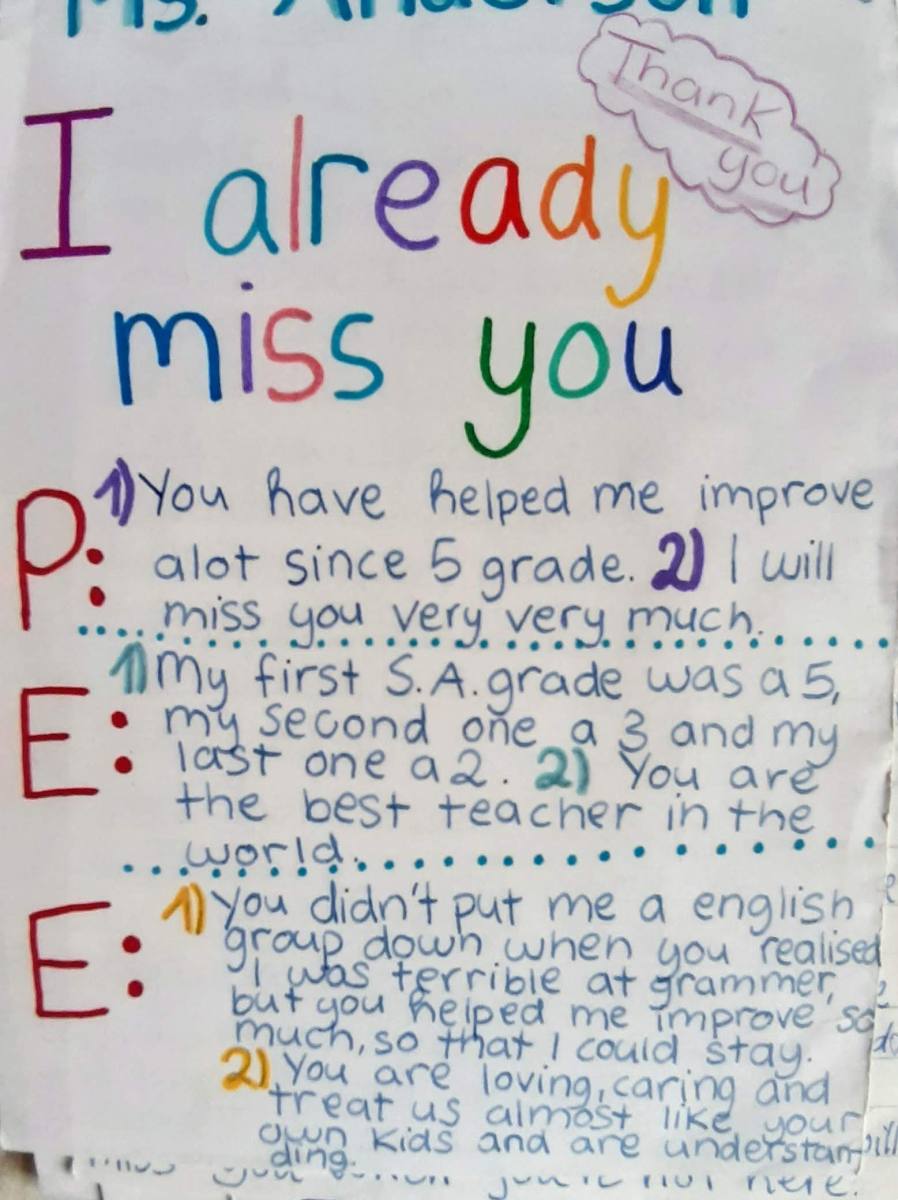 Ms. Anderson
Thank
you
I already
miss you
P: 1) You have helped me improve
alot since 5 grade. 2) I will
miss you very very much.
E: 1) My first S.A. grade was a 5,
my second one a 3 and my
last one a 2. 2) You are
the best teacher in the
world.
E: 1) You didn't put me a english
group down when you realised
I was terrible at grammer,
but you helped me improve so
much, so that I could stay.
2) You are loving, caring and
treat us almost like your
own kids and are understan-
ding.
miss you when you're not here.